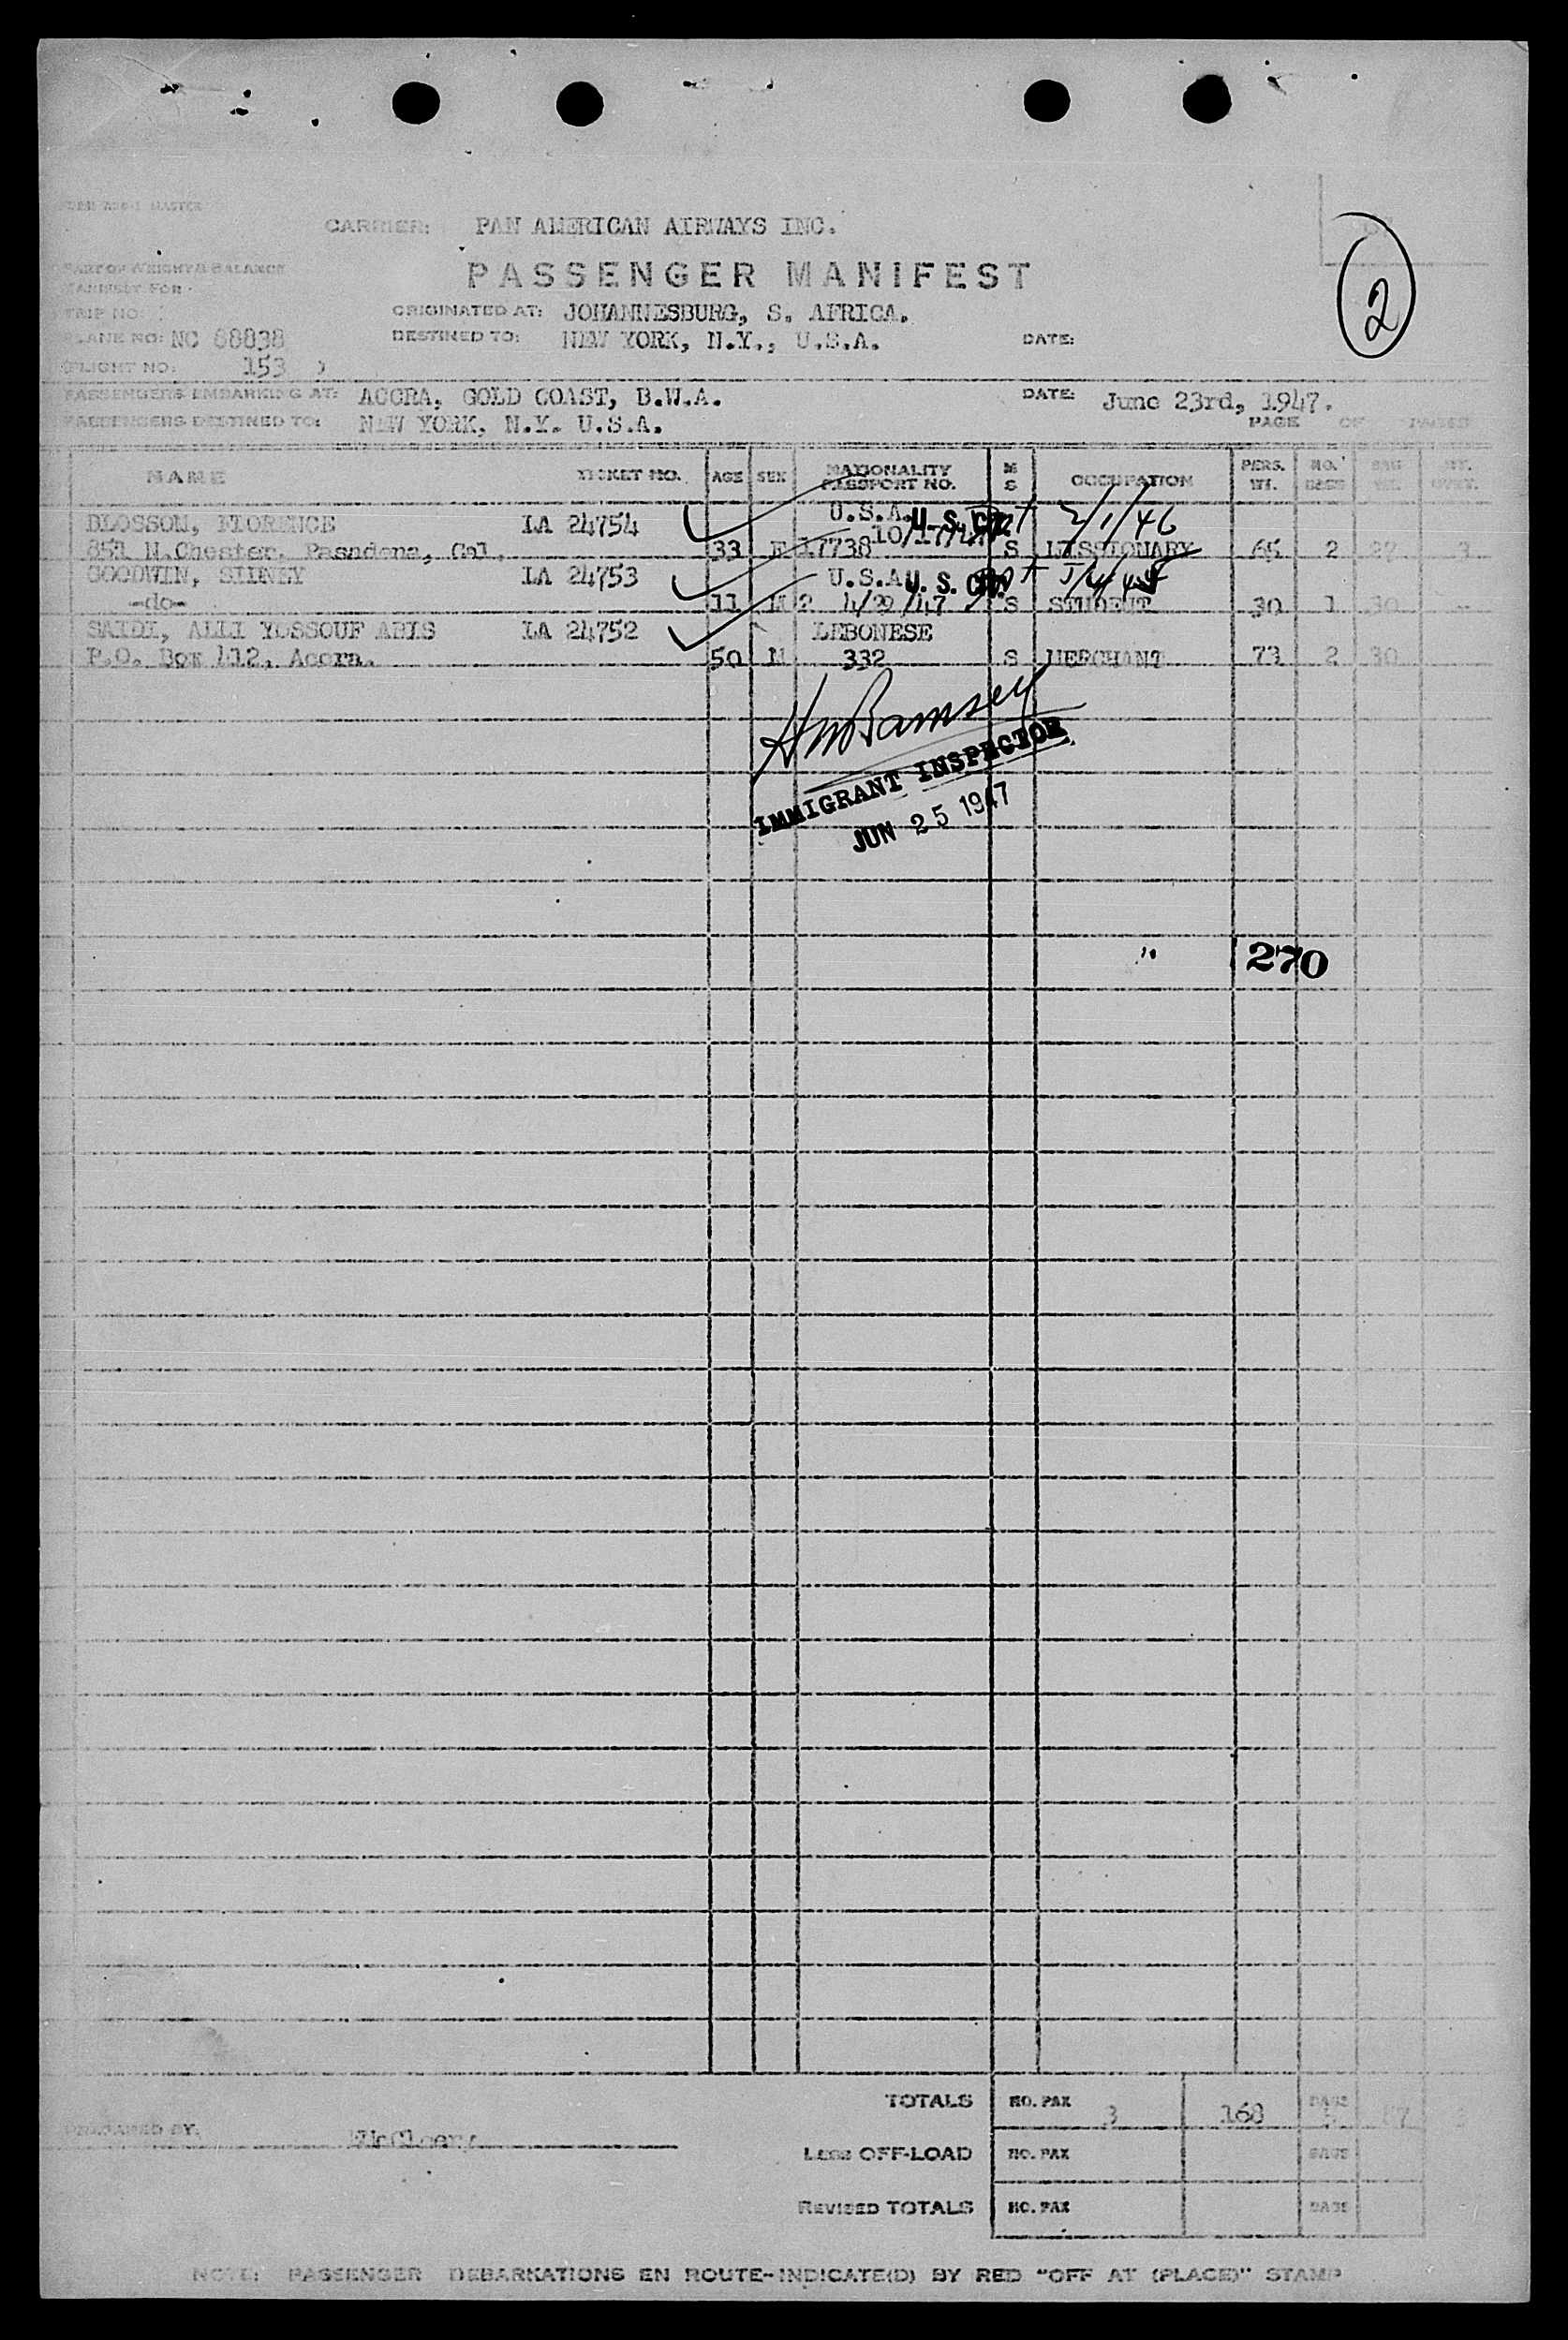 CARRIER: PAN AMERICAN AIRWAYS INC.
PASSENGER MANIFEST
PART OF WEIGHT & BALANCE
MANIFEST FOR
TRIP NO.
ORIGINATED AT: JOHANNESBURG, S. AFRICA.
PLANE NO: NC 88838 DESTINED TO: NEW YORK, N.Y., U.S.A. DATE:
2
FLIGHT NO. 153
PASSENGERS EMBARKING AT: ACCRA, GOLD COAST, B.W.A. DATE: June 23rd, 1947.
PASSENGERS DESTINED TO: NEW YORK, N.Y. U.S.A. PAGE OF PAGES
NAME TICKET NO. AGE SEX NATIONALITY PASSPORT NO. M S OCCUPATION PERS. WT. NO. BAGS BAG WT. WT. OVWT.
BLOSSOM, FLORENCE LA 24754 U.S.A. U. S. CIT. 2/1/46
851 N.Chester, Pasadena, Cal. 33 F 17738 S MISSIONARY 65 2 27 3
GOODWIN, SIDNEY LA 24753 U.S.A. U. S. CIT.
-do- 11 M 2 4/22/47 S STUDENT 30 1 30 --
SAIDI, ALLI YOSSOUF ABIS LA 24752 LEBONESE
P.O. Box 112, Accra. 50 M 332 S MERCHANT 73 2 30
IMMIGRANT INSPECTOR
JUN 25 1947
270
TOTALS NO. PAX 3 168 BAGS 5 87
PREPARED BY:
LESS OFF-LOAD NO. PAX BAGS
REVISED TOTALS NO. PAX BAGS
NOTE: PASSENGER DEBARKATIONS EN ROUTE-INDICATE(D) BY RED "OFF AT (PLACE)" STAMP